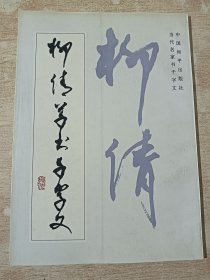 中国和平出版社
当代名家书千字文
柳倩
柳倩草书千字文